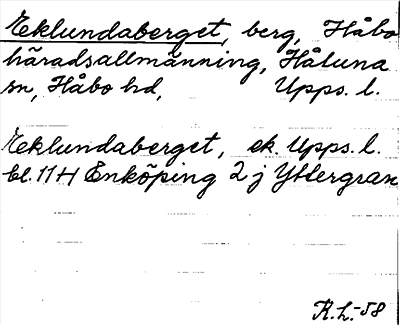 Eklundaberget, berg, Håbo
häradsallmänning, Håtuna
sn, Håbo hd, Upps. l.
Eklundaberget, ek. Upps. l.
bl. 11 H Enköping 2 j Yttergran
R.L. -58